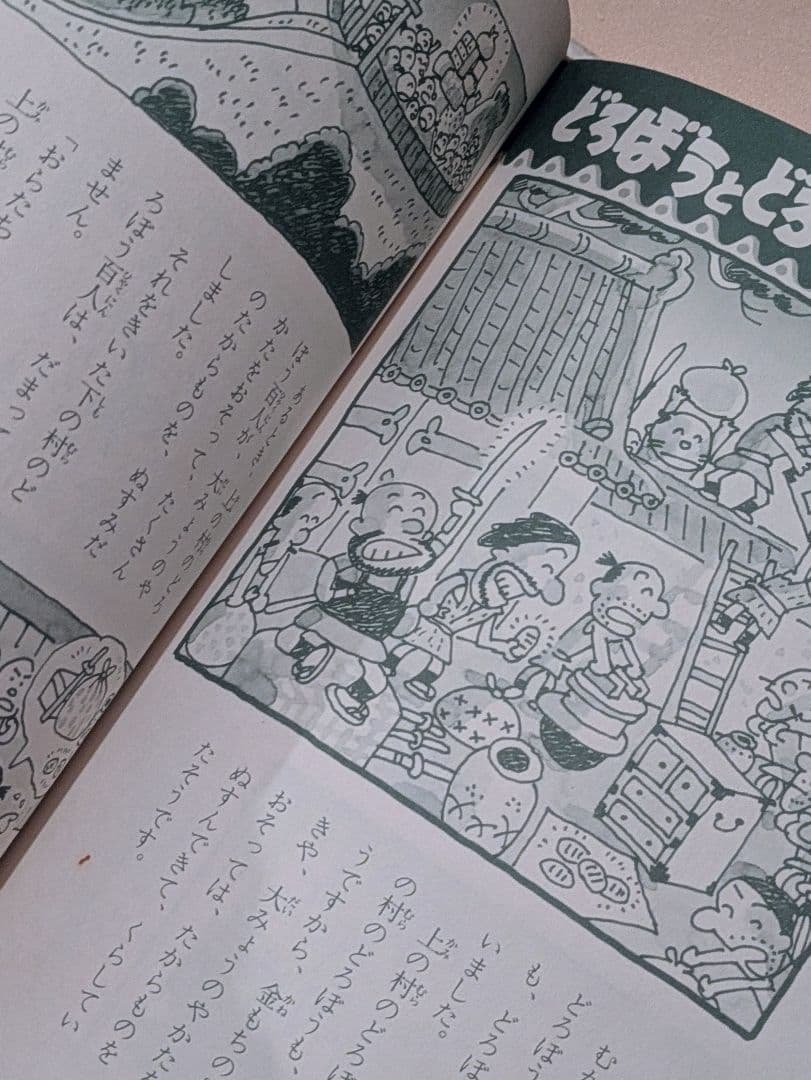 どろぼうとどろ
むか
どろぼう
も、どろぼ
いました。
上の村のどろぼ
の村のどろぼうも、
うですから、金もちの
きや、大みょうのやかた
おそっては、たからものを
ぬすんできて、くらしてい
たそうです。
あるとき、上の村のどろ
ぼう百人が、大みょうのや
かたをおそって、たくさん
のたからものを、ぬすみだ
しました。
それをきいた下の村のど
ろぼう百人は、だまって
ません。
「おらたち
上の村